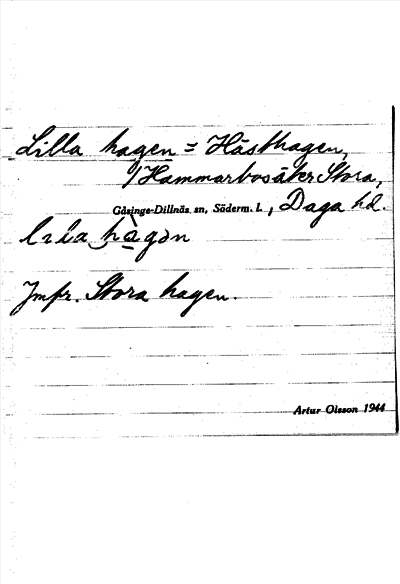 Lilla hagen = Hästhagen,
/Hammarbosäter Stora,
Gåsinge-Dillnäs sn, Söderm. l., Daga hd.
hagən
Jmfr. Stora hagen.
Artur Olsson 1944